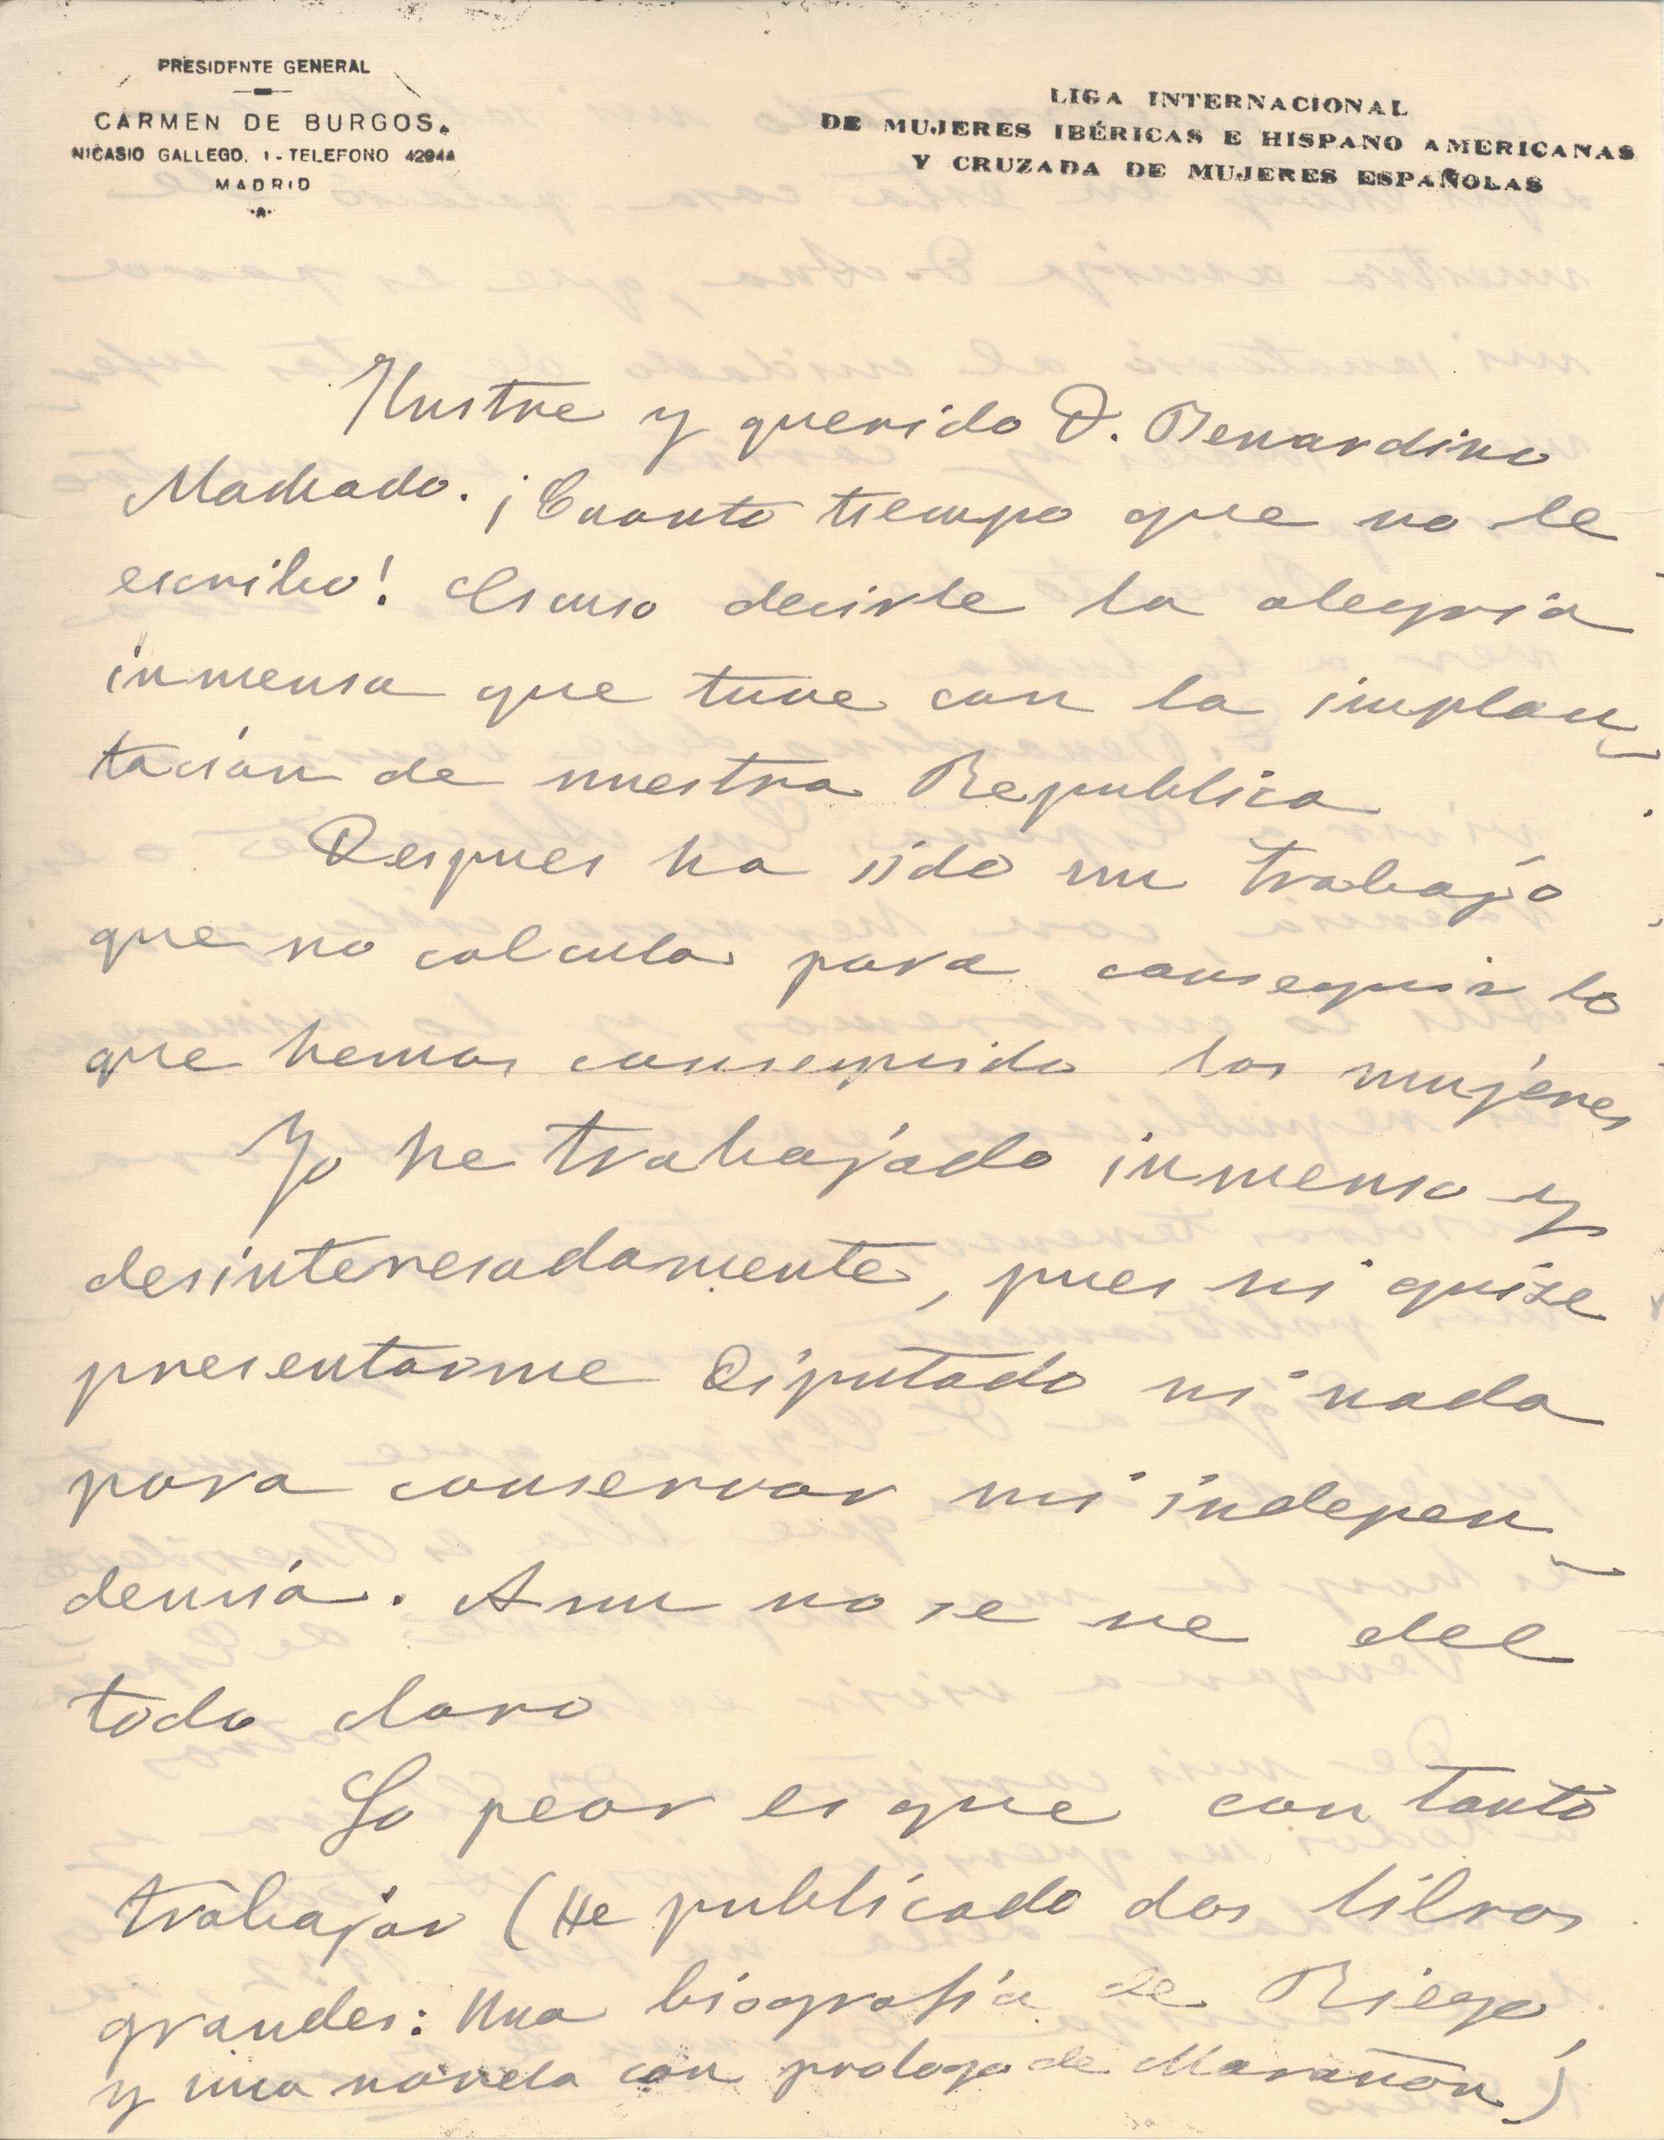 PRESIDENTE GENERAL
CARMEN DE BURGOS.
NICASIO GALLEGO, 1 - TELEFONO 42944
MADRID
LIGA INTERNACIONAL
DE MUJERES IBÉRICAS E HISPANO AMERICANAS
Y CRUZADA DE MUJERES ESPAÑOLAS
Ilustre y querido D. Benardino
Machado. ¡Cuanto tiempo que no le
escribo! Escuso decirle la alegria
inmensa que tuve con la implan-
tación de nuestra Republica
Despues ha sido un trabajo
que no calcula para conseguir lo
que hemos conseguido las mujeres
Yo he trabajado inmenso y
desinteresadamente, pues ni quise
presentarme Diputado ni nada
para conservar mi indepen-
dencia. Aun no se ve del
todo claro
Lo peor es que con tanto
trabajar (He publicado dos libros
grandes: Una biografía de Riego,
y una novela con prologo de Marañon)